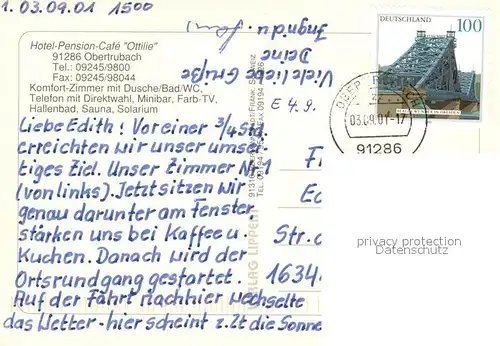 1. 03.09.01 1500
Hotel-Pension-Café "Ottilie"
91286 Obertrubach
Tel.: 09245/9800
Fax: 09245/98044
Komfort-Zimmer mit Dusche/Bad/WC,
Telefon mit Direktwahl, Minibar, Farb-TV,
Hallenbad, Sauna, Solarium
Liebe Edith! Vor einer 3/4 Std.
erreichten wir unser unser-
tiges Ziel. Unser Zimmer Nr 1
(von links). Jetzt sitzen wir
genau darunter am Fenster
stärken uns bei Kaffee u.
Kuchen. Danach wird der
Ortsrundgang gestartet.
Auf der Fahrt nachhier wechselte
das Wetter - hier scheint z. Zt die Sonne
Viele liebe Grüße
Deine
Ingrid u.
E 4.9.
VERLAG LIPPERT
DEUTSCHLAND
100
03.09.01-17
91286
Str.
1634
privacy protection
Datenschutz